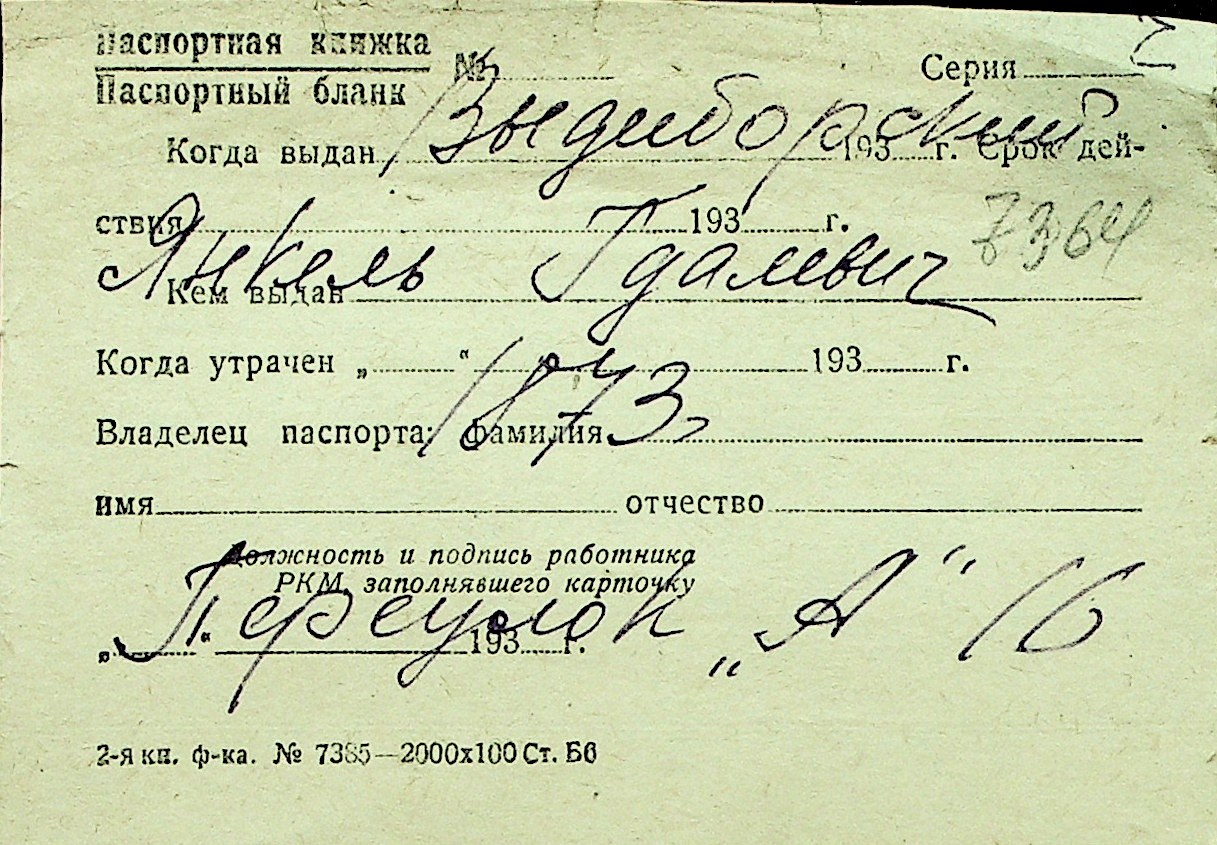 Паспортная книжка
Паспортный бланк
№ Серия
Выдиборский
Когда выдан 193 г. Срок дей-
ствия 193 г.
7364
Янкель Гдалевич
Кем выдан
Когда утрачен „ “ 193 г.
1873 г
Владелец паспорта: фамилия
имя отчество
Должность и подпись работника
РКМ, заполнявшего карточку
Переулок „А“ 16
„ “ 193 г.
2-я кн. ф-ка. № 7385—2000х100 Ст. Бб